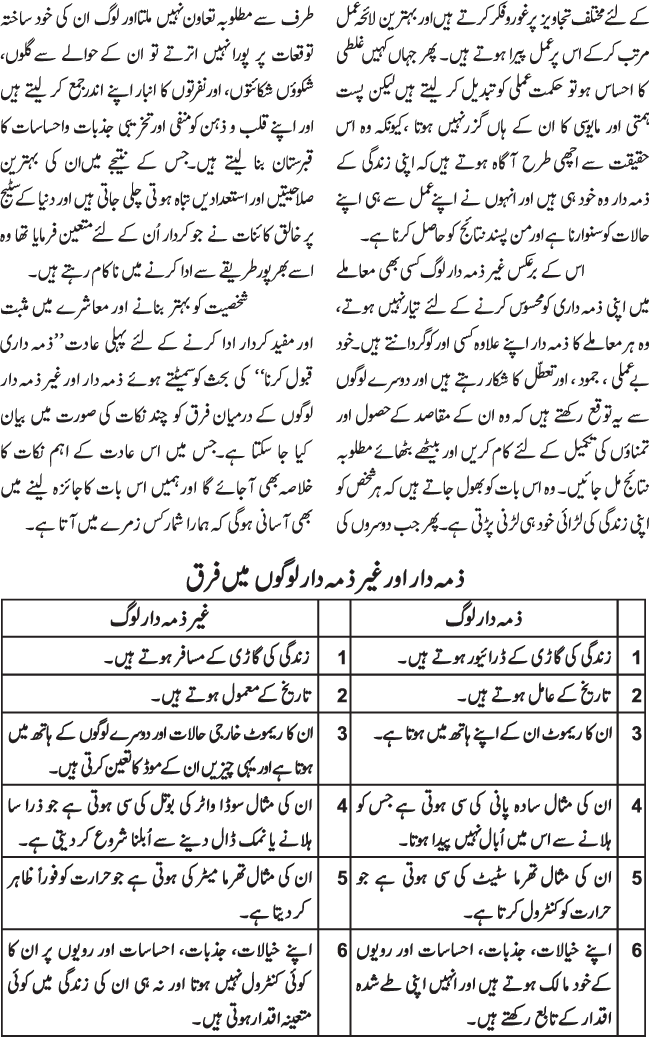 کے لئے مختلف تجاویز پر غور و فکر کرتے ہیں اور بہترین لائحہ عمل
مرتب کر کے اس پر عمل پیرا ہوتے ہیں۔ پھر جہاں کہیں غلطی
کا احساس ہو تو حکمت عملی کو تبدیل کر لیتے ہیں لیکن پست
ہمتی اور مایوسی کا ان کے ہاں گزر نہیں ہوتا ، کیونکہ وہ اس
حقیقت سے اچھی طرح آگاہ ہوتے ہیں کہ اپنی زندگی کے
ذمہ دار وہ خود ہی ہیں اور انہوں نے اپنے عمل سے ہی اپنے
حالات کو سنوارنا ہے اور من پسند نتائج کو حاصل کرنا ہے۔
اس کے برعکس غیر ذمہ دار لوگ کسی بھی معاملے
میں اپنی ذمہ داری کو محسوس کرنے کے لئے تیار نہیں ہوتے،
وہ ہر معاملے کا ذمہ دار اپنے علاوہ کسی اور کو گردانتے ہیں۔ خود
بے عملی ، جمود ، اور تعطّل کا شکار رہتے ہیں اور دوسرے لوگوں
سے یہ توقع رکھتے ہیں کہ وہ ان کے مقاصد کے حصول اور
تمناؤں کی تکمیل کے لئے کام کریں اور بیٹھے بٹھائے مطلوبہ
نتائج مل جائیں۔ وہ اس بات کو بھول جاتے ہیں کہ ہر شخص کو
اپنی زندگی کی لڑائی خود ہی لڑنی پڑتی ہے۔ پھر جب دوسروں کی
طرف سے مطلوبہ تعاون نہیں ملتا اور لوگ ان کی خود ساختہ
توقعات پر پورا نہیں اترتے تو ان کے حوالے سے گلوں،
شکوؤں شکائتوں، اور نفرتوں کا انبار اپنے اندر جمع کر لیتے ہیں
اور اپنے قلب و ذہن کو منفی اور تخریبی جذبات و احساسات کا
قبرستان بنا لیتے ہیں۔ جس کے نتیجے میں ان کی بہترین
صلاحیتیں اور استعدادیں تباہ ہو تی چلی جاتی ہیں اور دنیا کے سٹیج
پر خالق کائنات نے جو کردار اُن کے لئے متعین فرمایا تھا وہ
اسے بھرپور طریقے سے ادا کرنے میں ناکام رہتے ہیں۔
شخصیت کو بہتر بنانے اور معاشرے میں مثبت
اور مفید کردار ادا کرنے کے لئے پہلی عادت ‘‘ذمہ داری
قبول کرنا’’ کی بحث کو سمیٹتے ہوئے ذمہ دار اور غیر ذمہ دار
لوگوں کے درمیان فرق کو چند نکات کی صورت میں بیان
کیا جا سکتا ہے۔ جس میں اس عادت کے اہم نکات کا
خلاصہ بھی آ جائے گا اور ہمیں اس بات کا جائزہ لینے میں
بھی آسانی ہو گی کہ ہمارا شمار کس زمرے میں آتا ہے۔
ذمہ دار اور غیر ذمہ دار لوگوں میں فرق
ذمہ دار لوگ
غیر ذمہ دار لوگ
1 زندگی کی گاڑی کے ڈرائیور ہوتے ہیں۔
1 زندگی کی گاڑی کے مسافر ہوتے ہیں۔
2 تاریخ کے عامل ہوتے ہیں۔
2 تاریخ کے معمول ہوتے ہیں۔
3 ان کا ریموٹ ان کے اپنے ہاتھ میں ہوتا ہے۔
3 ان کا ریموٹ خارجی حالات اور دوسرے لوگوں کے ہاتھ میں
ہوتا ہے اور یہی چیزیں ان کے موڈ کا تعین کرتی ہیں۔
4 ان کی مثال سادہ پانی کی سی ہوتی ہے جس کو
ہلانے سے اس میں اُبال نہیں پیدا ہوتا۔
4 ان کی مثال سوڈا واٹر کی بوتل کی سی ہوتی ہے جو ذرا سا
ہلانے یا نمک ڈال دینے سے اُبلنا شروع کر دیتی ہے۔
5 ان کی مثال تھرما سٹیٹ کی سی ہوتی ہے جو
حرارت کو کنٹرول کرتا ہے۔
5 ان کی مثال تھرما میٹر کی ہوتی ہے جو حرارت کو فوراً ظاہر
کر دیتا ہے۔
6 اپنے خیالات، جذبات، احساسات اور رویوں
کے خود مالک ہوتے ہیں اور انہیں اپنی طے شدہ
اقدار کے تابع رکھتے ہیں۔
6 اپنے خیالات، جذبات، احساسات اور رویوں پر ان کا
کوئی کنٹرول نہیں ہوتا اور نہ ہی ان کی زندگی میں کوئی
متعینہ اقدار ہوتی ہیں۔